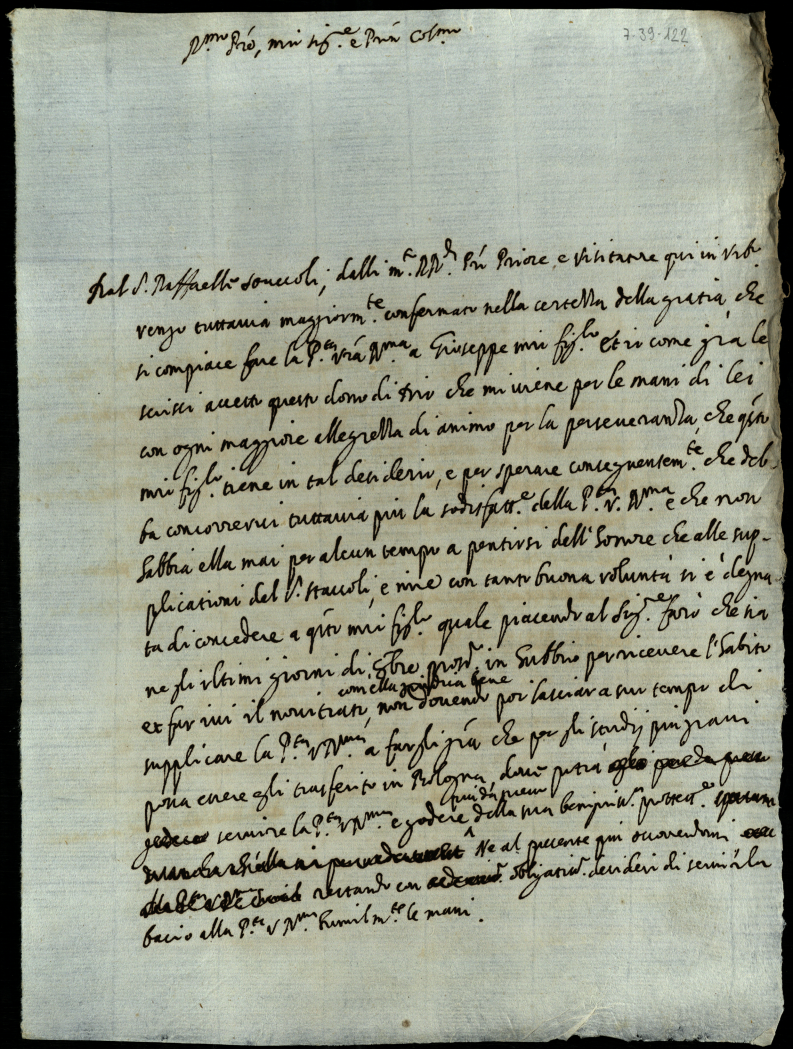 R.mo P.re, mio Sig.re e P.rone Col.mo
7-39-122
Dal S. Raffaelle Staccoli, e dalli m.to RR.di P.ri Priore e Visitatore qui in Urb.o
vengo tuttavia maggiorm.te confermato nella certezza della gratia, che
si compiace fare la P.tà V.ra R.ma a Gioseppe mio fig.lo. Et sì come già le
scrissi accetto questo dono di Dio che mi viene per le mani di lei
con ogni maggiore allegrezza di animo per la perseveranza, che q.sto
mio fig.lo tiene in tal desiderio, e per sperare conseguentem.te che deb-
ba concorrervi tuttavia più la sodisfatt.e della P.tà V. R.ma e che non
habbia ella mai per alcun tempo a pentirsi dell'honore che alle sup-
plicationi del S. Staccoli, e mie con tanto buona voluntà si è degna-
ta di concedere a q.sto mio fig.lo quale piacendo al Sig.re farò che sia
ne gli ultimi giorni di 8bre pross.o in Gubbio per ricevere l'habito
et far ivi il novitiato, non dovendo poi lasciar a suo tempo di
supplicare la P.tà V. R.ma a fargli già che per gli studij più gravi
possa essere egli trasferito in Bologna, dove potrà
servire la P.tà V. R.ma e godere della sua benignis.a protett.e
Ne al presente qui occorrendomi
restando con obligatis.o desiderio di servirla
bacio alla P.tà V. R.ma humilm.te le mani.